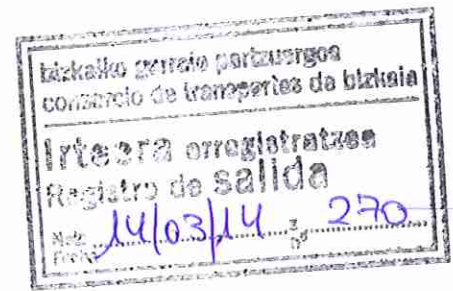 bizkaiko garraio partzuergoa
consorcio de transportes de bizkaia
Irteera erregistratzea
Registro de salida
Fecha 14/03/14 Nº 270